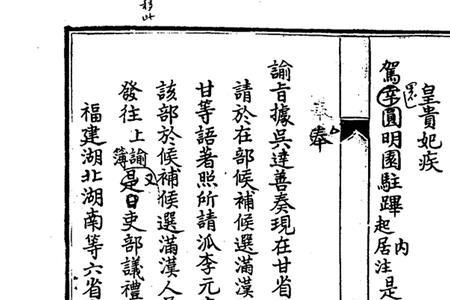 皇貴妃疾
駕幸還圓明園駐蹕 內起居注 是
奉
諭旨據吳達善奏現在甘省
請於在部候補候選滿漢
甘等語著照所請派李元
該部於候補候選滿漢人
發往 上諭簿 又是日吏部議禮
福建湖北湖南等六省
移此